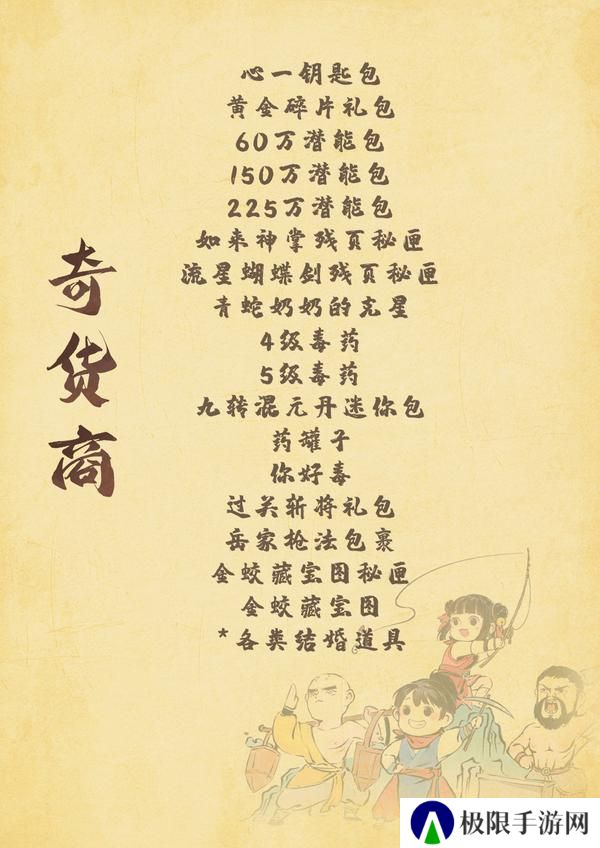 奇货商
心一钥匙包
黄金碎片礼包
60万潜能包
150万潜能包
225万潜能包
如来神掌残页秘匣
流星蝴蝶剑残页秘匣
青蛇奶奶的克星
4级毒药
5级毒药
九转混元丹迷你包
药罐子
你好毒
过关斩将礼包
岳家枪法包裹
金蛟藏宝图秘匣
金蛟藏宝图
*各类结婚道具
极限手游网